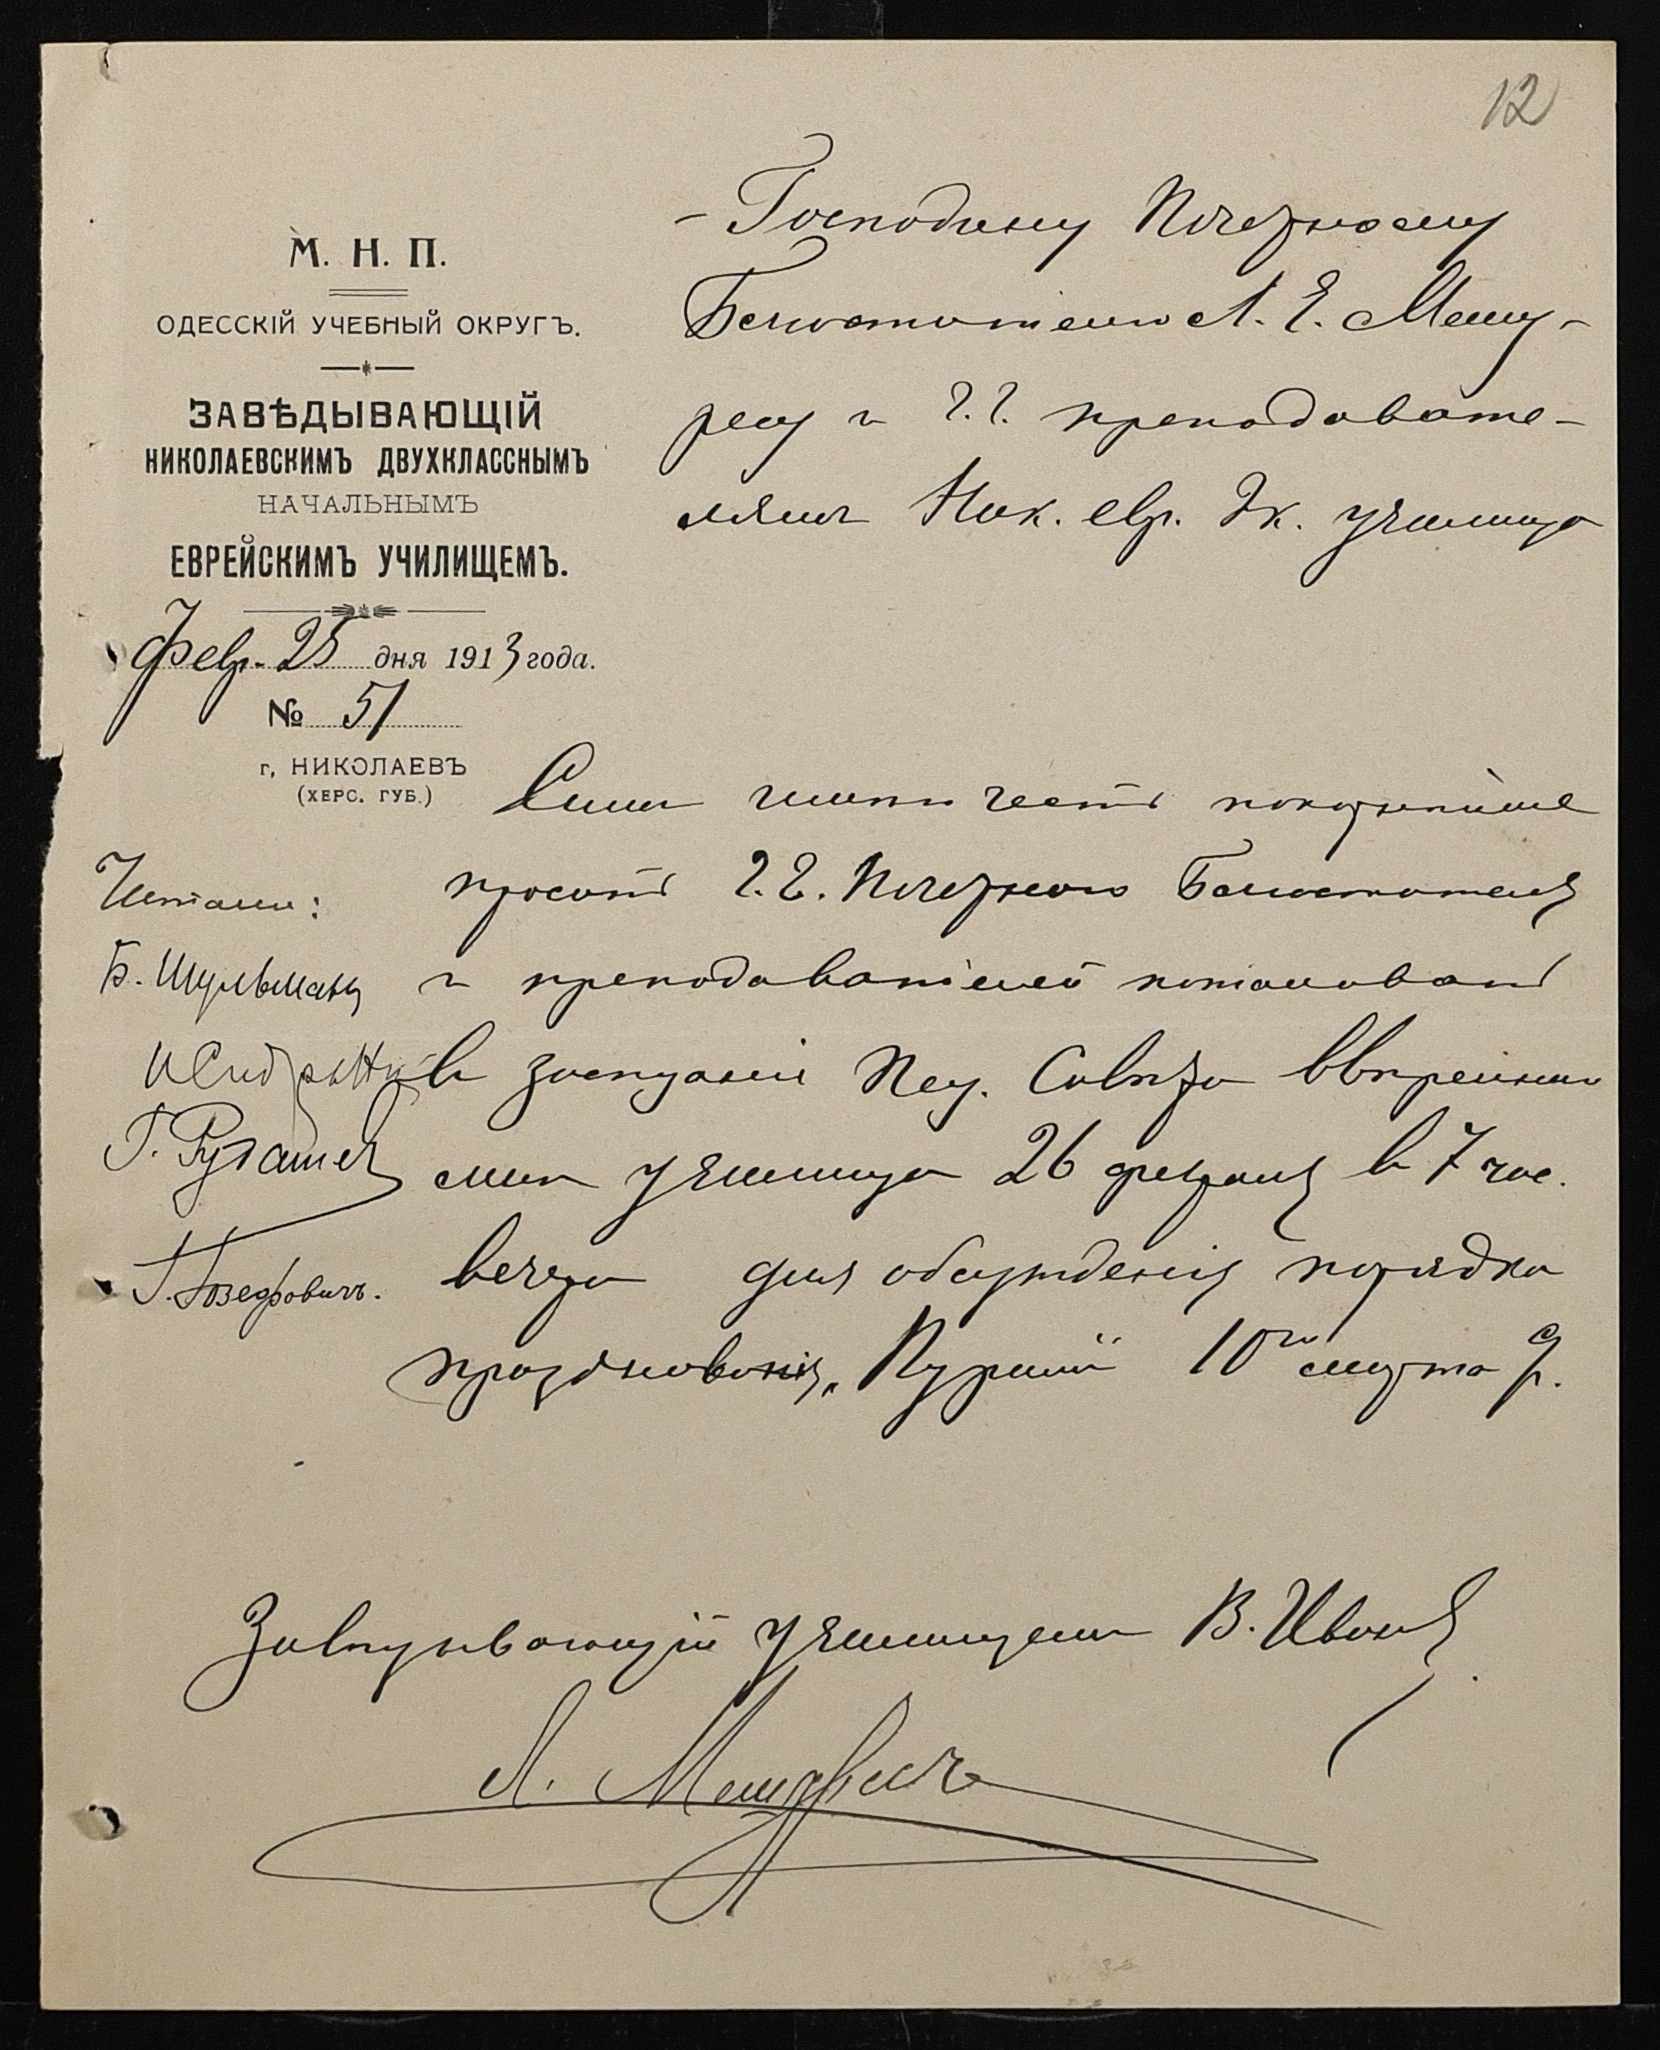 12
М. Н. П.
ОДЕССКІЙ УЧЕБНЫЙ ОКРУГЪ.
ЗАВѢДЫВАЮЩІЙ
НИКОЛАЕВСКИМЪ ДВУХКЛАССНЫМЪ
НАЧАЛЬНЫМЪ
ЕВРЕЙСКИМЪ УЧИЛИЩЕМЪ.
Февр. 25 дня 1913 года.
№ 51
г. НИКОЛАЕВЪ
(ХЕРС. ГУБ.)
Господину Почетному
Блюстителю Л. Е. Мещу-
рову и г.г. преподавате-
лямъ Ник. евр. 2к. училища
Симъ имѣю честь покорнѣйше
просить г.г. Почетнаго Блюстителя
и преподавателей пожаловать
въ засѣданіе Пед. Совѣта ввѣреннаго
мнѣ училища 26 февраля в 7 час.
вечера для обсужденія порядка
празднованія „Пурим" 10го марта с. г.
Читали:
Б. Шульманъ
Г. Іозефовичъ.
Завѣдывающій училищемъ В. Иванов